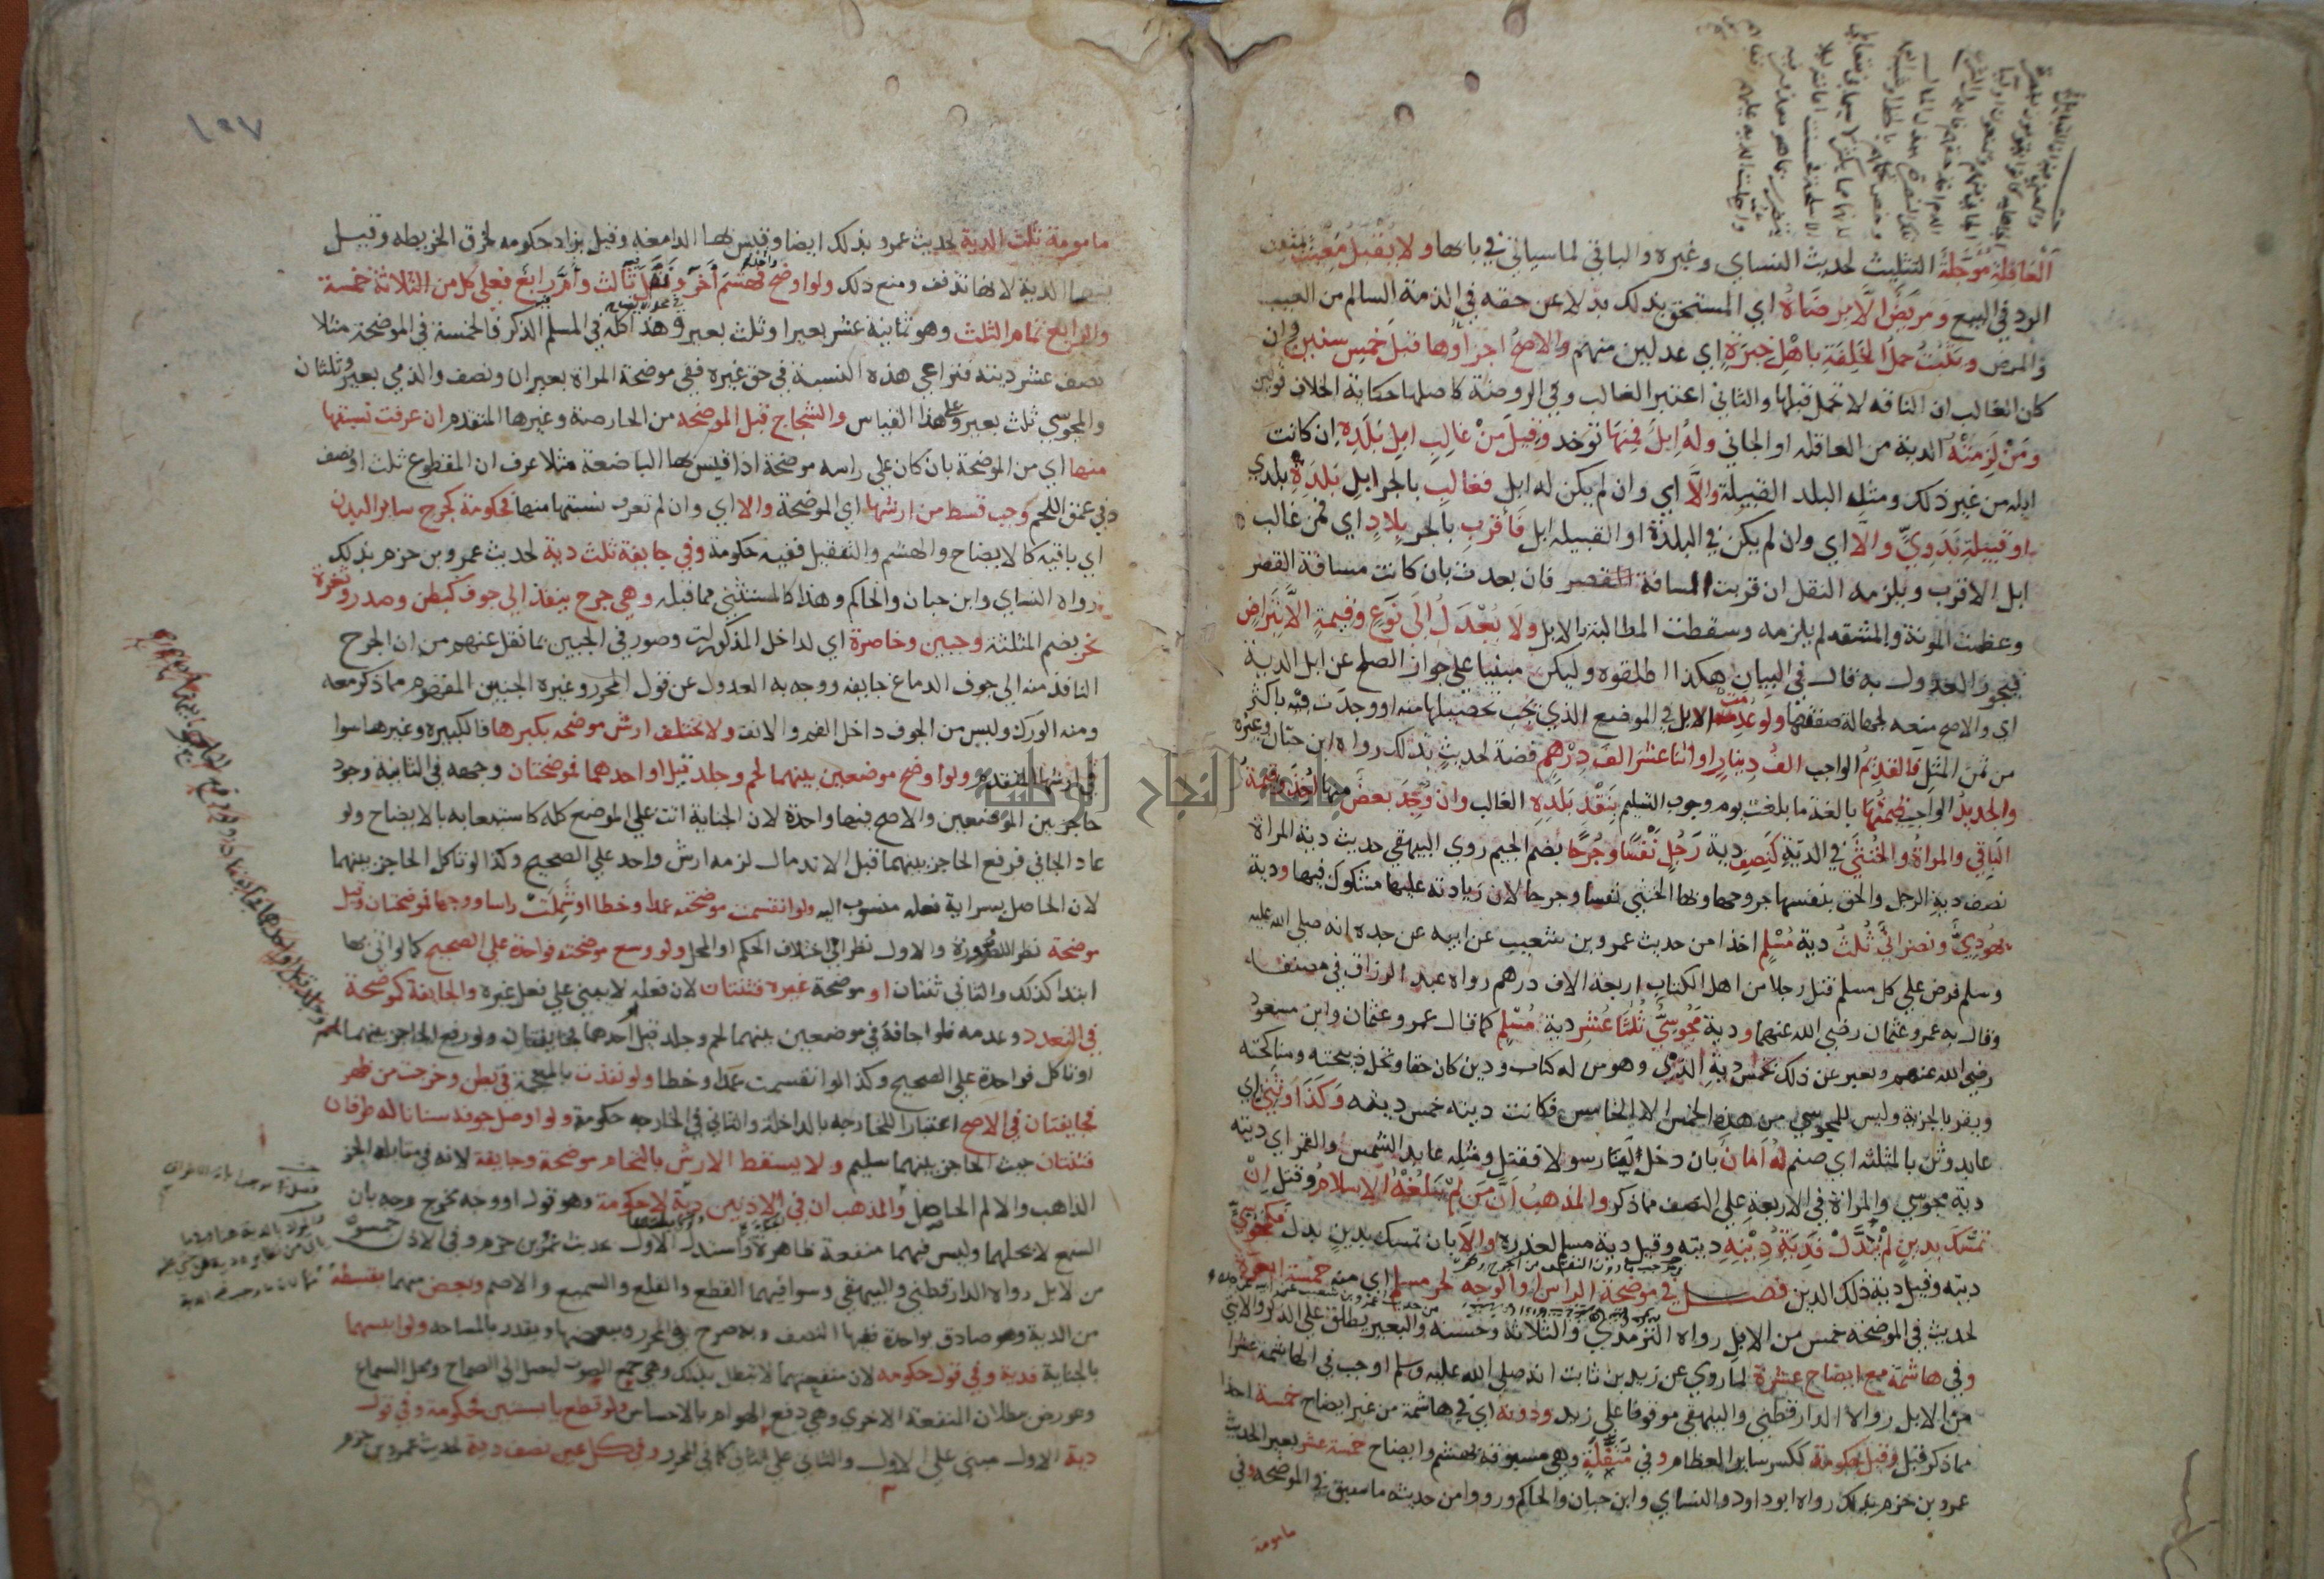 العاقلة مؤجلة التثليث لحديث النساي وغيره والباقي لما سياتي في بابها ولا يقبل معيب
الرد في البيع ومريض الا برضاه اي المستحق بذلك بدلا عن حقه في الذمة السالم من العيب
والمرض ويثبت حمل الخلفة باهل خبرة اي عدلين منهم والاصح اجزاؤها قبل خمس سنين وان
كان الغالب ان الناقه لا تحمل قبلها والثاني اعتبر الغالب وفي الروضة كاصلها حكاية الخلاف قولين
ومن لزمته الدية من العاقله او الجاني وله ابل فمنها توخد وقيل من غالب ابل بلده ان كانت
ابله من غير ذلك ومثله البلد القبيلة والا اي وان لم يكن له ابل فغالب بالجر ابل بلدة بلدي
او قبيلة بدوي والا اي وان لم يكن في البلدة او القبيله ابل فاقرب بالجر بلاد اي فمن غالب
ابل الاقرب ويلزمه النقل ان قربت المسافة فان بعدت بان كانت مسافة القصر
وعظمت المونة والمشقه لم يلزمه وسقطت المطالبة بالابل ولا يعدل الى نوع وقيمة الا بتراض
فيجوز العدول به قال في البيان هكذا اطلقوه وليكن مبنيا على جواز الصلح عن ابل الدية
اي والاصح منعه لجهالة صفتها ولو عدمت الابل في الموضع الذي يجب تحصيلها منه او وجدت فيه باكثر
من ثمن المثل فالقديم الواجب الف دينار او اثنا عشر الف درهم فضة لحديث بذلك رواه ابن حبان وغيره
والجديد الواجب قيمتها بالغة ما بلغت يوم وجوب التسليم بنقد بلده الغالب وان وجد بعض منها اخذ وقيمة
الباقي والمراة والخنثى في الدية كنصف دية رجل نفسا وجرحا بضم الجيم روي البيهقي حديث دية المراة
نصف دية الرجل والحق بنفسها جروحها وبها الخنثى نفسا وجرحا لان زيادته عليها مشكوك فيها ودية
يهودي ونصراني ثلث دية مسلم اخذا من حديث عمرو بن شعيب عن ابيه عن جده انه صلى الله عليه
وسلم فرض على كل مسلم قتل رجلا من اهل الكتاب اربعة الاف درهم رواه عبد الرزاق في مصنفه
وقال به عمر وعثمان رضي الله عنهما ودية مجوسي ثلثا عشر دية مسلم كما قال عمر وعثمان وابن مسعود
رضي الله عنهم ويعبر عن ذلك بخمس دية الذمي وهو من له كتاب ودين كان حقا وتحل ذبيحته ومناكحته
ويقر بالجزية وليس للمجوسي من هذه الخمس الا الخامس فكانت ديته خمس ديته وكذا وثني اي
عابد وثن بالمثلثه اي صنم له امان بان دخل الينا رسولا فقتل ومثله عابد الشمس والقمر اي ديته
دية مجوسي والمراة في الاربعة على النصف مما ذكر والمذهب ان من لم يبلغه الاسلام وقتل ان
تمسك بدين لم يبدل فدية دينه ديته وقيل دية مسلم لعذره والا بان تمسك بدين بدل فكمجوسي
ديته وقيل دية ذلك الدين فصل في موضحة الراس او الوجه لحر مسلم اي منه خمسة ابعرة
لحديث في الموضحة خمس من الابل رواه الترمذي والثلاثة وحسنه والبعير يطلق على الذكر والانثى
وفي هاشمة مع ايضاح عشرة لما روي عن زيد بن ثابت انه صلى الله عليه وسلم اوجب في الهاشمة عشرا
من الابل رواه الدارقطني والبيهقي موقوفا على زيد ودونه اي في هاشمة من غير ايضاح خمسة اخذا
مما ذكر قبل وقيل حكومة ككسر ساير العظام وفي منقلة وهي مسبوقة بهشم وايضاح خمسة عشر بعيرا لحديث
عمرو بن حزم بذلك رواه ابو داود والنساي وابن حبان والحاكم ورووا من حديثه ما سبق في الموضحه وفي
مامومة
١٩٧
مامومة ثلث الدية لحديث عمرو بذلك ايضا وقيس بها الدامغة وقيل يزاد حكومه لخرق الخريطه وقيل
فيها الدية لانها تذفف ومنع ذلك ولو اوضح فهشم آخر ونقل ثالث وام رابع فعلى كل من الثلاثة خمسة
والرابع تمام الثلث وهو ثمانية عشر بعيرا وثلث بعير وهذا كله في المسلم الذكر فالخمسة في الموضحة مثلا
نصف عشر ديته فتراعي هذه النسبة في حق غيره ففي موضحة المراة بعيران ونصف والذمي بعير وثلثان
والمجوسي ثلث بعير وعلى هذا القياس والشجاج قبل الموضحه من الحارصة وغيرها المتقدم ان عرفت نسبتها
منها اي من الموضحة بان كان على راسه موضحة اذا قيس بها الباضعة مثلا عرف ان المقطوع ثلث او نصف
في عمق اللحم وجب قسط من ارشها اي الموضحة والا اي وان لم تعرف نسبتها منها فحكومة كجرح ساير البدن
اي باقيه كالايضاح والهشم والتنقيل ففيه حكومة وفي جايفة ثلث دية لحديث عمرو بن حزم بذلك
رواه النساي وابن حبان والحاكم وهذا كالمستثنى مما قبله وهي جرح ينفذ الى جوف كبطن وصدر وثغرة
نحر بضم المثلثة وجبين وخاصرة اي لداخل المذكورات وصور في الجبين بما نقل عنهم من ان الجرح
النافذ منه الى جوف الدماغ جايفه ووجه به العدول عن قول المحرر وغيره الجنبين المفهوم مما ذكر معه
ومنه الورك وليس من الجوف داخل الفم والانف ولا يختلف ارش موضحه بكبرها فالكبيره وغيرها سوا
في ارشها المتقدم ولو اوضح موضعين بينهما لحم وجلد قيل او احدهما فموضحتان وجمعه في الثانية وجود
حاجز بين الموضعين والاصح فيها واحدة لان الجناية اتت على الموضع كله كاستيعابه بالايضاح ولو
عاد الجاني فرفع الحاجز بينهما قبل الاندمال لزمه ارش واحد على الصحيح وكذا لو تاكل الحاجز بينهما
لان الحاصل بسراية فعله منسوب اليه ولو انقسمت موضحته عمدا وخطا او شملت راسا ووجها فموضحتان وقيل
موضحة نظرا للصورة والاول نظر الى اختلاف الحكم او المحل ولو وسع موضحته فواحدة على الصحيح كما لو اتى بها
ابتدا كذلك والثاني ثنتان او موضحة غيره فثنتان لان فعله لا يبنى على فعل غيره والجايفة كموضحة
في التعدد وعدمه فلو اجافه في موضعين بينهما لحم وجلد قيل او احدهما فجايفتان ولو رفع الحاجز بينهما
او تاكل فواحدة على الصحيح وكذا لو انقسمت عمدا وخطا ولو نفذت بالمعجمة في بطن وخرجت من ظهر
فجايفتان في الاصح اعتبارا للخارجه بالداخلة والثاني في الخارجه حكومة ولو اوصل جوفه سنانا له طرفان
فثنتان حيث الحاجز بينهما سليم ولا يسقط الارش بالتحام موضحة وجايفة لانه في مقابلة الجزء
الذاهب والالم الحاصل والمذهب ان في الاذنين دية لا حكومة وهو قول او وجه مخرج وجه بان
السمع لا يحلهما وليس فيهما منفعة ظاهرة واستدل الاول بحديث عمرو بن حزم وفي الاذن خمسون
من الابل رواه الدارقطني والبيهقي وسوا فيهما القطع والقلع والسميع والاصم وبعض منهما بقسطه
من الدية وهو صادق بواحدة ففيها النصف وبه صرح في المحرر وببعضها ويقدر بالمساحه ولو ايبسهما
بالجناية فدية وفي قول حكومه لان منفعتهما لا تبطل بذلك وهي جمع الصوت ليصل الى الصماخ ومحل السماع
وعورض ببطلان المنفعة الاخرى وهي دفع الهوام بالاحساس ولو قطع يابستين فحكومة وفي قول
دية الاول مبني على الاول والثاني على الثاني كما في المحرر وفي كل عين نصف دية لحديث عمرو بن حزم
جامعة النجاح الوطنية